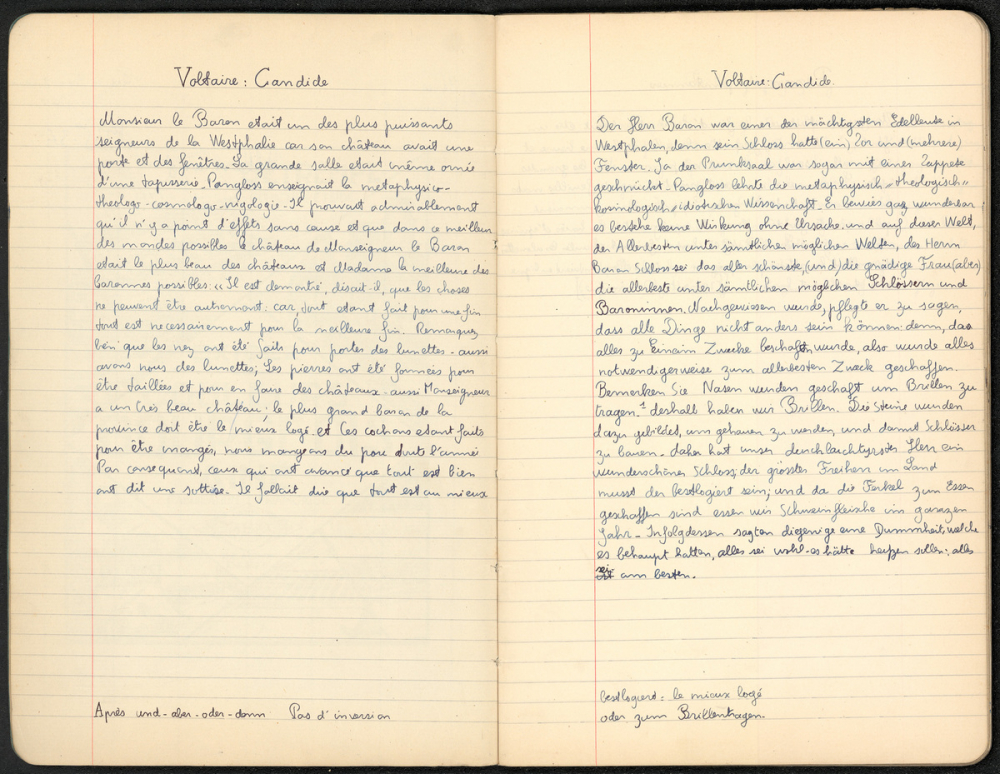 Voltaire : Candide
Monsieur le Baron etait un des plus puissants
seigneurs de la Westphalie car son château avait une
porte et des fenêtres. Sa grande salle etait même ornée
d'une tapisserie. Pangloss enseignait la metaphysico-
theologo-cosmologo-nigologie. Il prouvait admirablement
qu'il n'y a point d'effets sans cause et que dans ce meilleur
des mondes possibles le château de Monseigneur le Baron
etait le plus beau des châteaux et Madame la meilleure des
baronnes possibles. « Il est demontré, disait il, que les choses
ne peuvent être autrement: car, tout etant fait pour une fin
tout est necessairement pour la meilleure fin. Remarquez
bien que les nez ont été faits pour porter des lunettes - aussi
avons nous des lunettes; Les pierres ont été formées pour
être taillées et pour en faire des châteaux - aussi Monseigneur
a un très beau château; le plus grand baron de la
province doit être le mieux logé. et Les cochons etant faits
pour être mangés, nous mangeons du porc toute l'année
Par consequent, ceux qui ont avancé que tout est bien
ont dit une sottise. Il fallait dire que tout est au mieux
Après und-aber-oder-denn Pas d'inversion
Voltaire: Candide.
Der Herr Baron war einer der mächtigsten Edelleute in
Westphalen, denn sein Schloss hatte (ein) Tor und (mehrere)
Fenster. Ja der Prunksaal war sogar mit einer Tappete
geschmückt. Pangloss lehrte die metaphysisch=theologisch=
kosmologisch=idiotischen Wissenschaft. Er bewies gaz wunderbar
es bestehe keine Wirkung ohne Ursache, und auf dieser Welt,
der Allerbesten unter sämtlichen möglichen Welten, des Herrn
Baron Schloss sei das aller schönste, (und) die gnädige Frau (aber)
die allerbeste unter sämtlichen möglichen Schlössern und
Baroninnen. Nachgewiesen wurde, pflegte er zu sagen,
dass alle Dinge nicht anders sein können: denn, das
alles zu Einem Zwecke beschafft, wurde, also wurde alles
notwendigerweise zum allerbesten Zweck geschaffen.
Bemerken Sie Nasen wurden geschaft um Brillen zu
tragen. deshalb haben wir Brillen. Die Steine wurden
dazu gebildet, um gehauen zu werden, und damit Schlösser
zu bauen. daher hat unser durchlauchtigster Herr ein
wunderschönes Schloss, der grösster Freiherr im Land
musst der bestlogiert sein; und da die Ferkel zum Essen
geschaffen sind essen wir Schweinfleische im ganzen
Jahr. Infolgdessen sagten diejenige eine Dummheit, welche
es behaupt hatten, alles sei wohl. es hätte heissen sollen: alles
sei am besten.
bestlogiert: le mieux logé
oder zum Brillentragen.